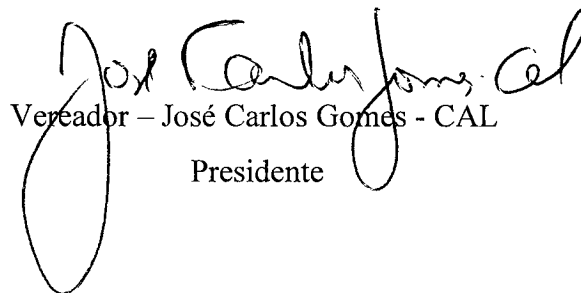 José Carlos Gomes-Cal
Vereador – José Carlos Gomes - CAL
Presidente